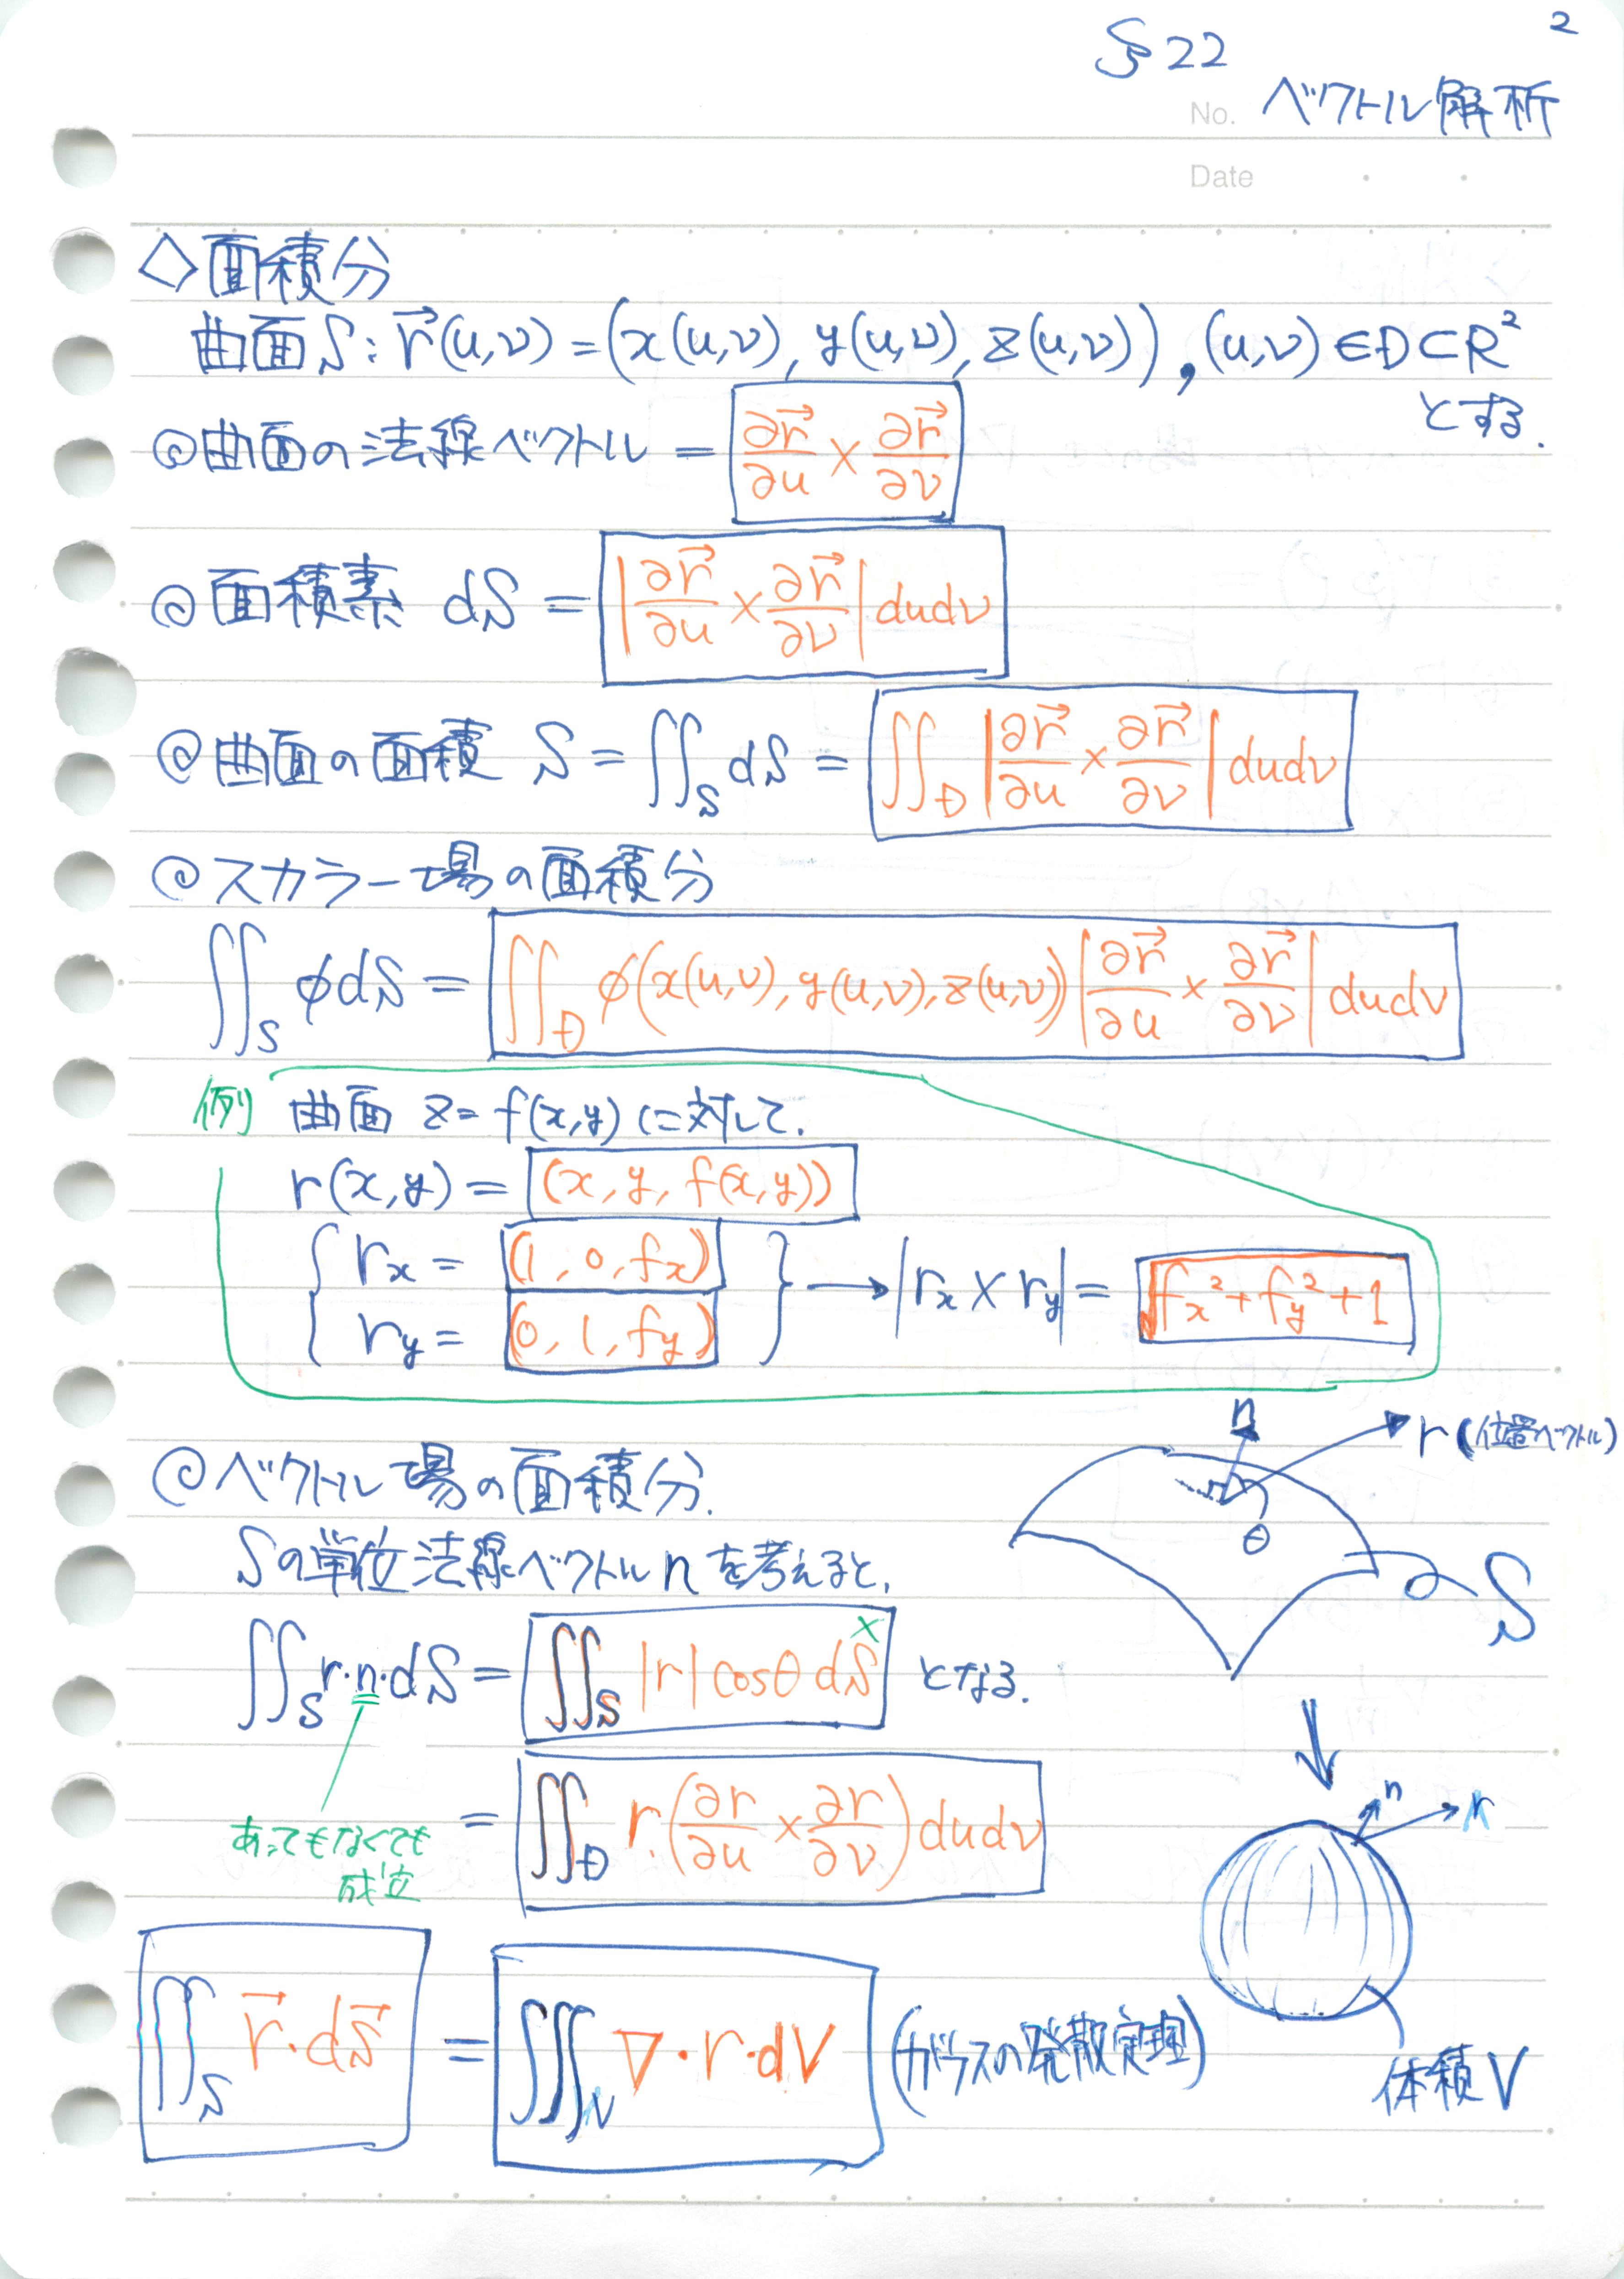 2
§22
No. ベクトル解析
Date
◇面積分
曲面S: r⃗(u,v)=(x(u,v), y(u,v), z(u,v)), (u,v)∈D⊂R²
とする.
◎曲面の法線ベクトル = ∂r⃗/∂u × ∂r⃗/∂v
◎面積素 dS = |∂r⃗/∂u × ∂r⃗/∂v| dudv
◎曲面の面積 S = ∬_S dS = ∬_D |∂r⃗/∂u × ∂r⃗/∂v| dudv
◎スカラー場の面積分
∬_S φdS = ∬_D φ(x(u,v), y(u,v), z(u,v)) |∂r⃗/∂u × ∂r⃗/∂v| dudv
例 曲面 z=f(x,y)に対して.
r(x,y) = (x, y, f(x,y))
{ r_x = (1, 0, f_x)
r_y = (0, 1, f_y) } → |r_x × r_y| = √f_x²+f_y²+1
◎ベクトル場の面積分.
n
r(位置ベクトル)
θ
S
Sの単位法線ベクトルnを考えると,
∬_S r・n・dS = ∬_S |r| cosθ dS × となる.
あってもなくても
成立
= ∬_D r・(∂r/∂u × ∂r/∂v) dudv
n
r
∬_S r⃗・dS⃗ = ∭_V ∇・r・dV (ガウスの発散定理)
体積V